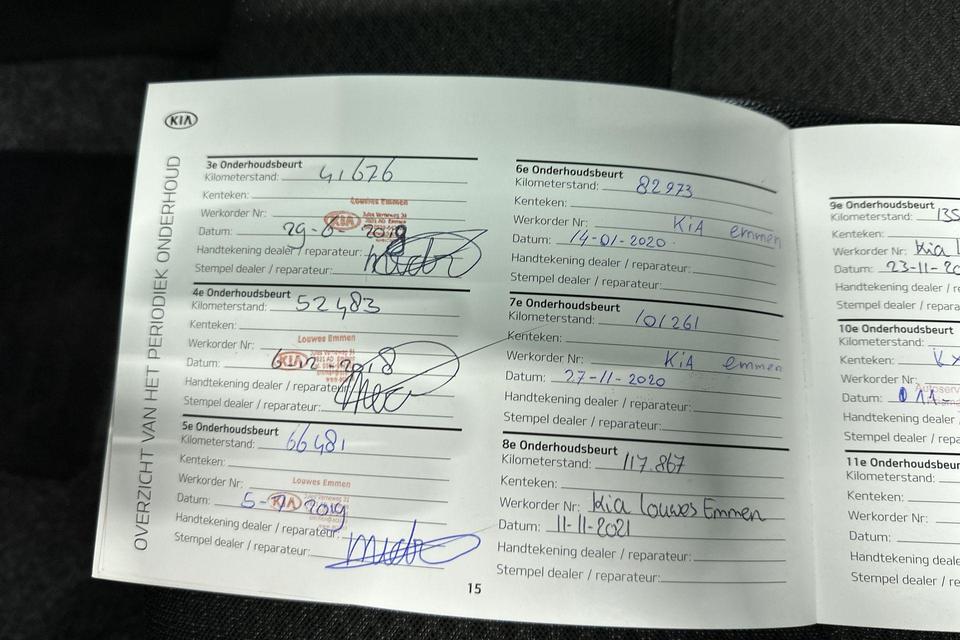 KIA
OVERZICHT VAN HET PERIODIEK ONDERHOUD
3e Onderhoudsbeurt
Kilometerstand: 41676
Kenteken:
Louwes Emmen
Werkorder Nr: KIA
Datum: 29-8 2018
Handtekening dealer / reparateur:
Stempel dealer / reparateur:
4e Onderhoudsbeurt
Kilometerstand: 52483
Kenteken:
Louwes Emmen
Werkorder Nr:
Datum: KIA 2018
Handtekening dealer / reparateur:
Stempel dealer / reparateur:
5e Onderhoudsbeurt
Kilometerstand: 66481
Kenteken:
Louwes Emmen
Werkorder Nr:
Datum: 5- KIA 2019
Handtekening dealer / reparateur:
Stempel dealer / reparateur:
6e Onderhoudsbeurt
Kilometerstand: 82973
Kenteken:
Werkorder Nr: KiA emmen
Datum: 14-01-2020
Handtekening dealer / reparateur:
Stempel dealer / reparateur:
7e Onderhoudsbeurt
Kilometerstand: 101261
Kenteken:
Werkorder Nr: KiA emmen
Datum: 27-11-2020
Handtekening dealer / reparateur:
Stempel dealer / reparateur:
8e Onderhoudsbeurt
Kilometerstand: 117.867
Kenteken:
Werkorder Nr: Kia Louwes Emmen
Datum: 11-11-2021
Handtekening dealer / reparateur:
Stempel dealer / reparateur:
15
9e Onderhoudsbeurt
Kilometerstand: 135
Kenteken:
Werkorder Nr: Kia
Datum: 23-11-20
Handtekening dealer / re
Stempel dealer / repara
10e Onderhoudsbeurt
Kilometerstand:
Kenteken:
Werkorder Nr:
Datum: 11-
Handtekening dealer /
Stempel dealer / repa
11e Onderhoudsbeurt
Kilometerstand:
Kenteken:
Werkorder Nr:
Datum:
Handtekening dealer
Stempel dealer / rep